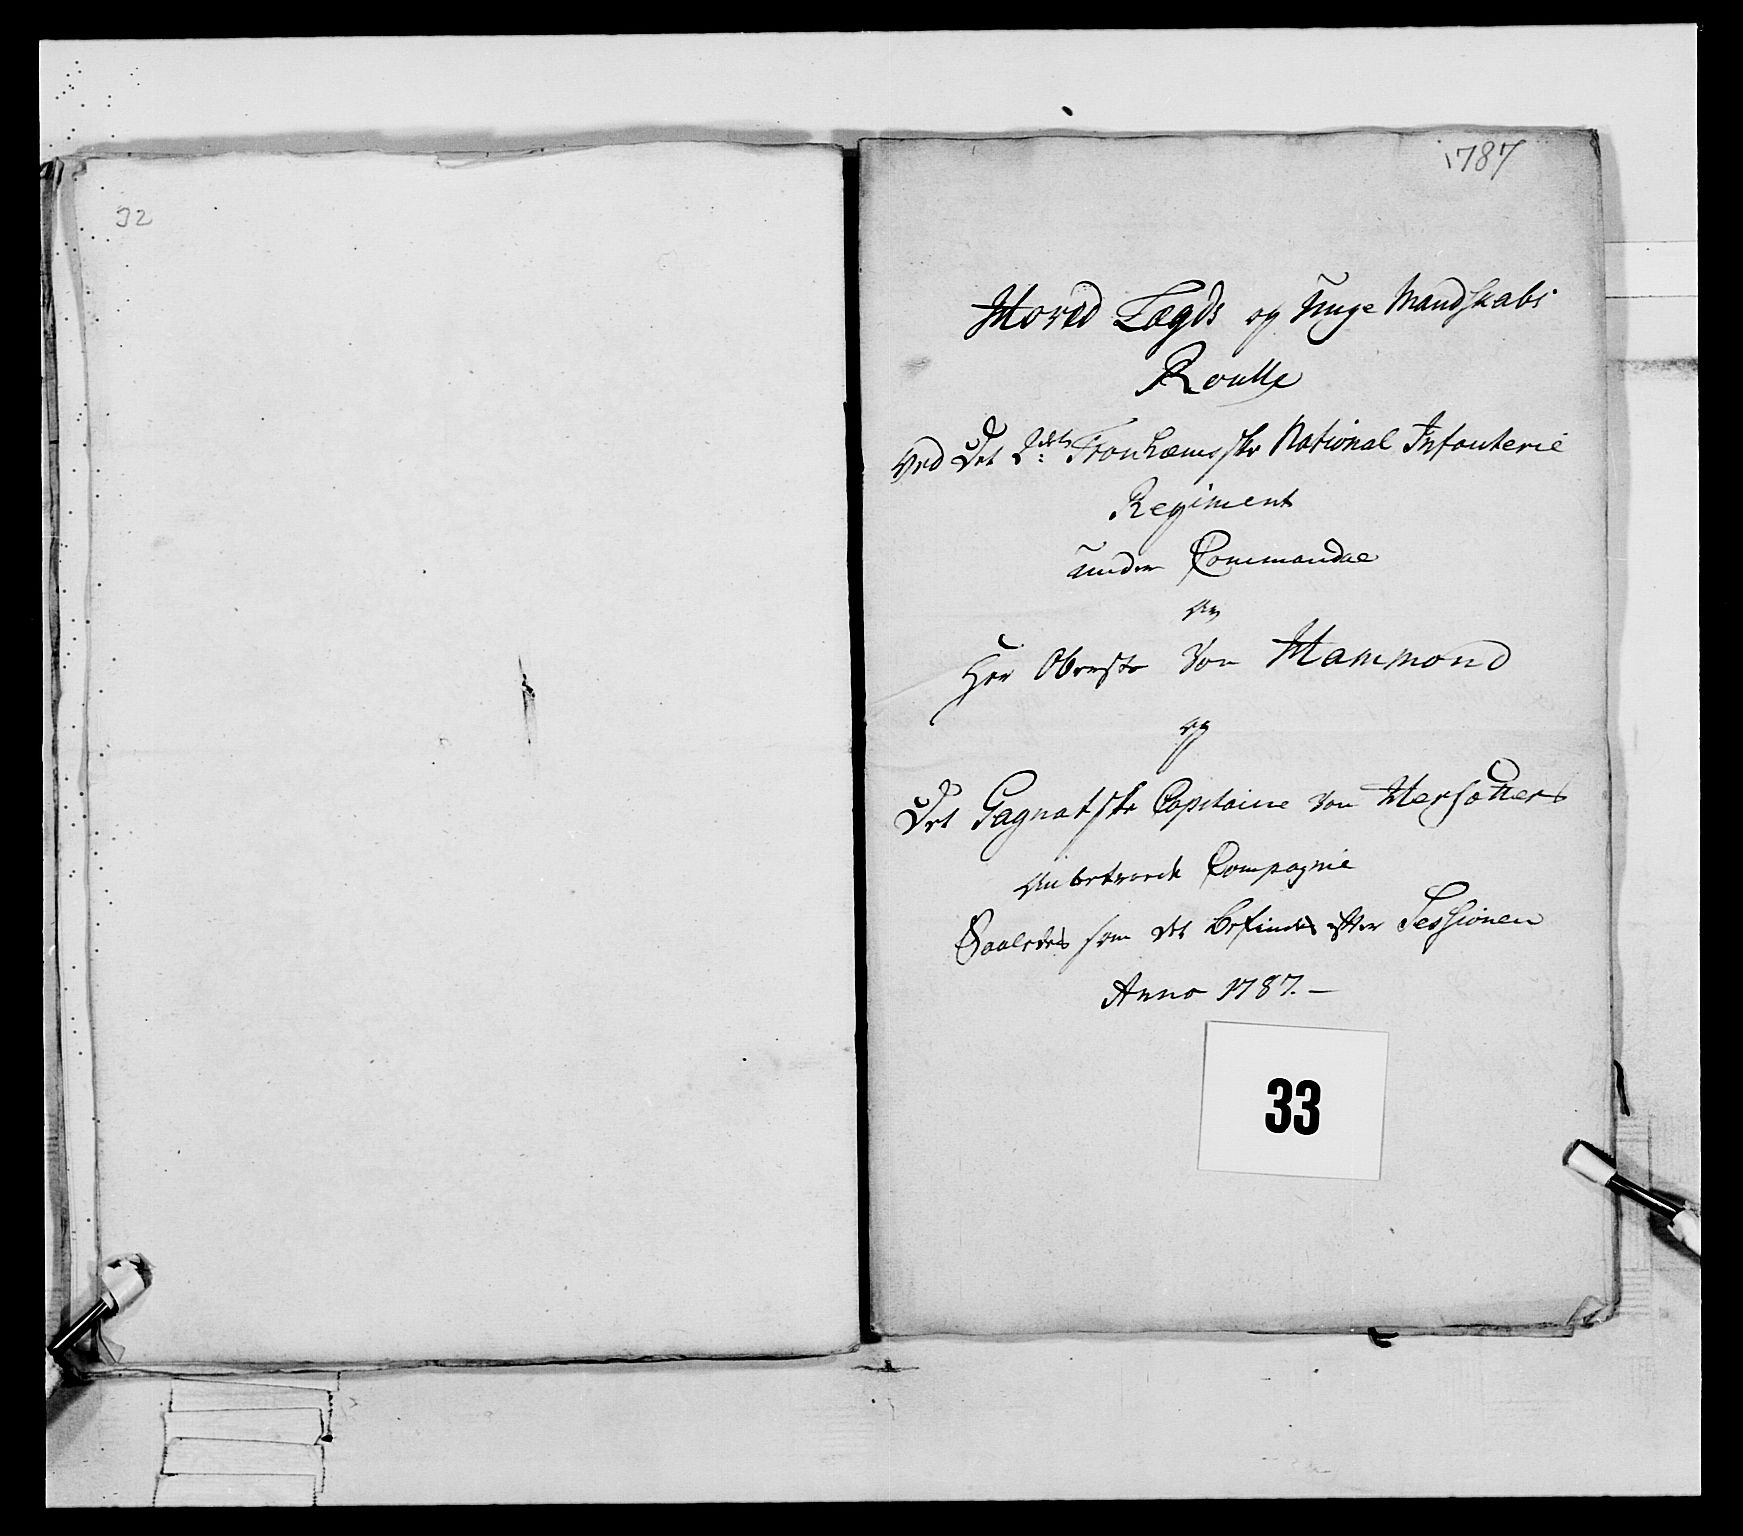 32
1787
Hoved Lægds og Unge Mandskabs
Roulle
ved Det 2det Tronhiemske National Infanterie
Regiment
under Commando
af
Herr Oberste von Hammond
og
Det Gagnatske Capitaine von
anbetroede Compagnie
Saaledes som det befindes efter Sessionen
Anno 1787.—
33